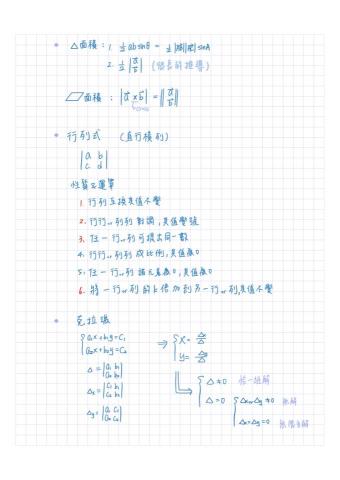 * △面積: 1. ½absinθ = ½|AB||AC|sinA
2. ½|a⃗ b⃗|
▱面積: |a⃗×b⃗| = ||a⃗ b⃗||
* 行列式 (直行橫列)
|a b|
|c d|
性質&運算
1. 行列互換其值不變
2. 行行or列列對調,其值變號
3. 任一行or列可提出同一數
4. 行行or列列成比例,其值為0
5. 任一行or列諸元為0,其值為0
6. 將一行or列的k倍加到另一行or列,其值不變
* 克拉瑪
{a₁x+b₁y=c₁ ⇒ {x= △x/△
a₂x+b₂y=c₂ y= △y/△
△=|a₁ b₁|
|a₂ b₂|
△x=|c₁ b₁|
|c₂ b₂|
△y=|a₁ c₁|
|a₂ c₂|
{△≠0 恰一組解
△=0 {△x or △y≠0 無解
△x=△y=0 無限多解